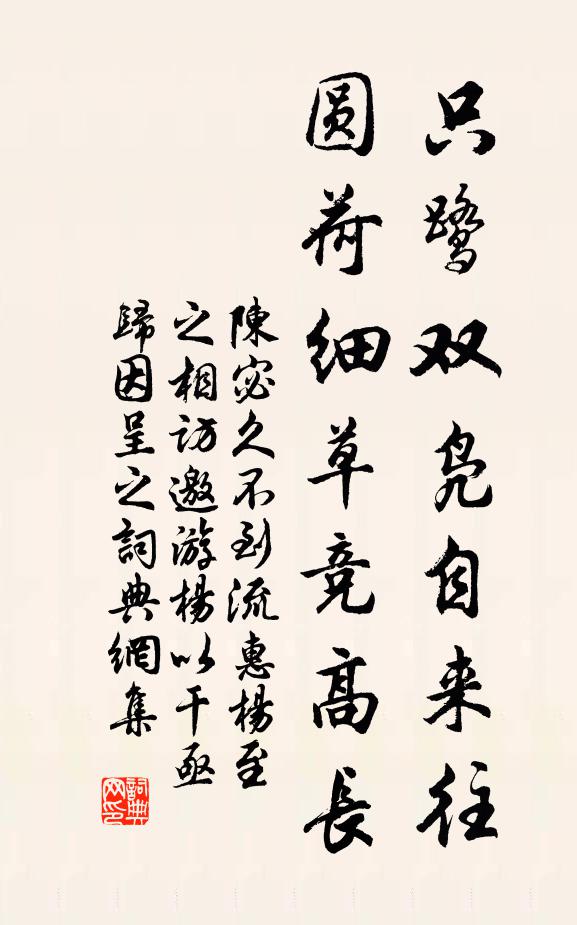 只鹭双凫自来往
圆荷细草竞高長
陳宓久不到流惠楊至
之相访邀游楊以干亟
歸因呈之詞典網集
詞典网印